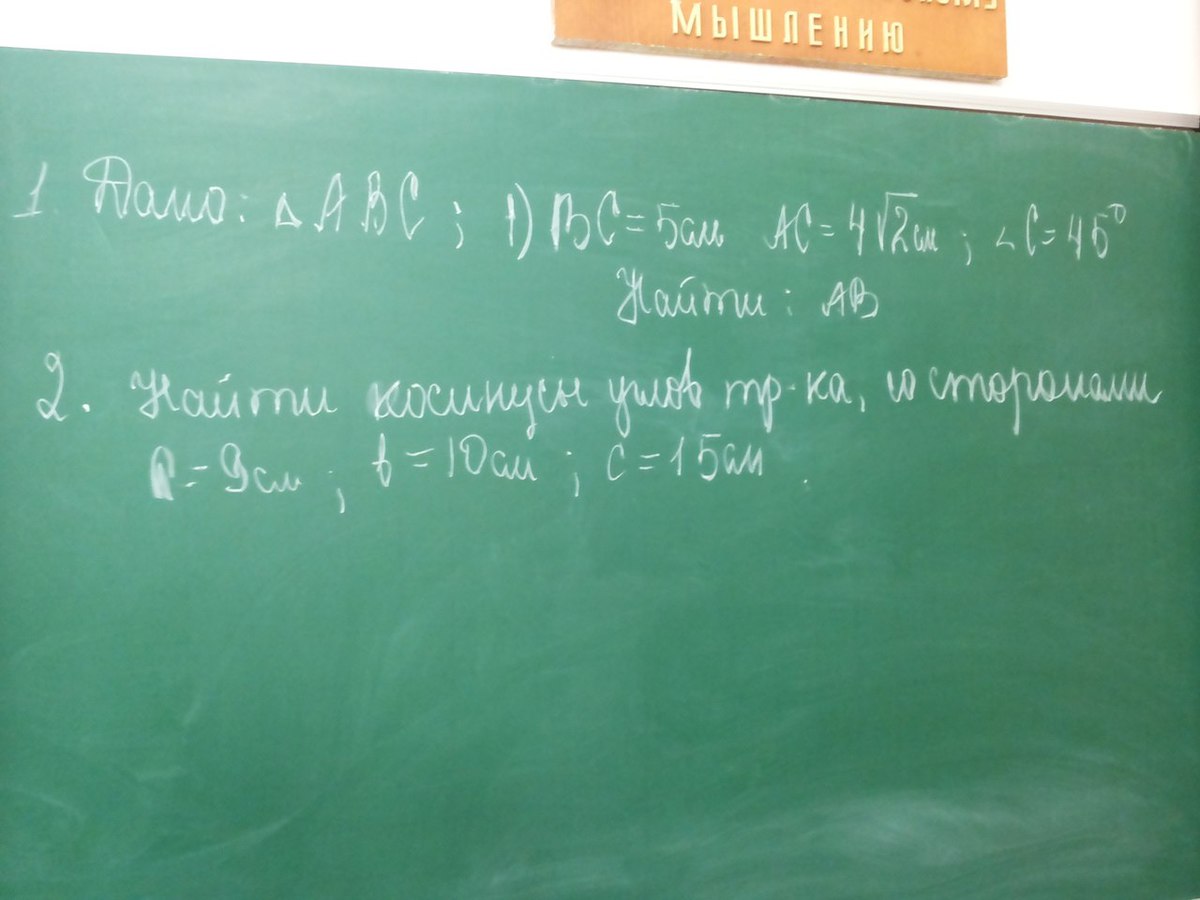 МЫШЛЕНИЮ
1. Дано: △ABC; 1) BC = 5см AC = 4√2см; ∠C = 45°
Найти: AB
2. Найти косинусы углов тр-ка, со сторонами
a = 9см; b = 10см; c = 15см.